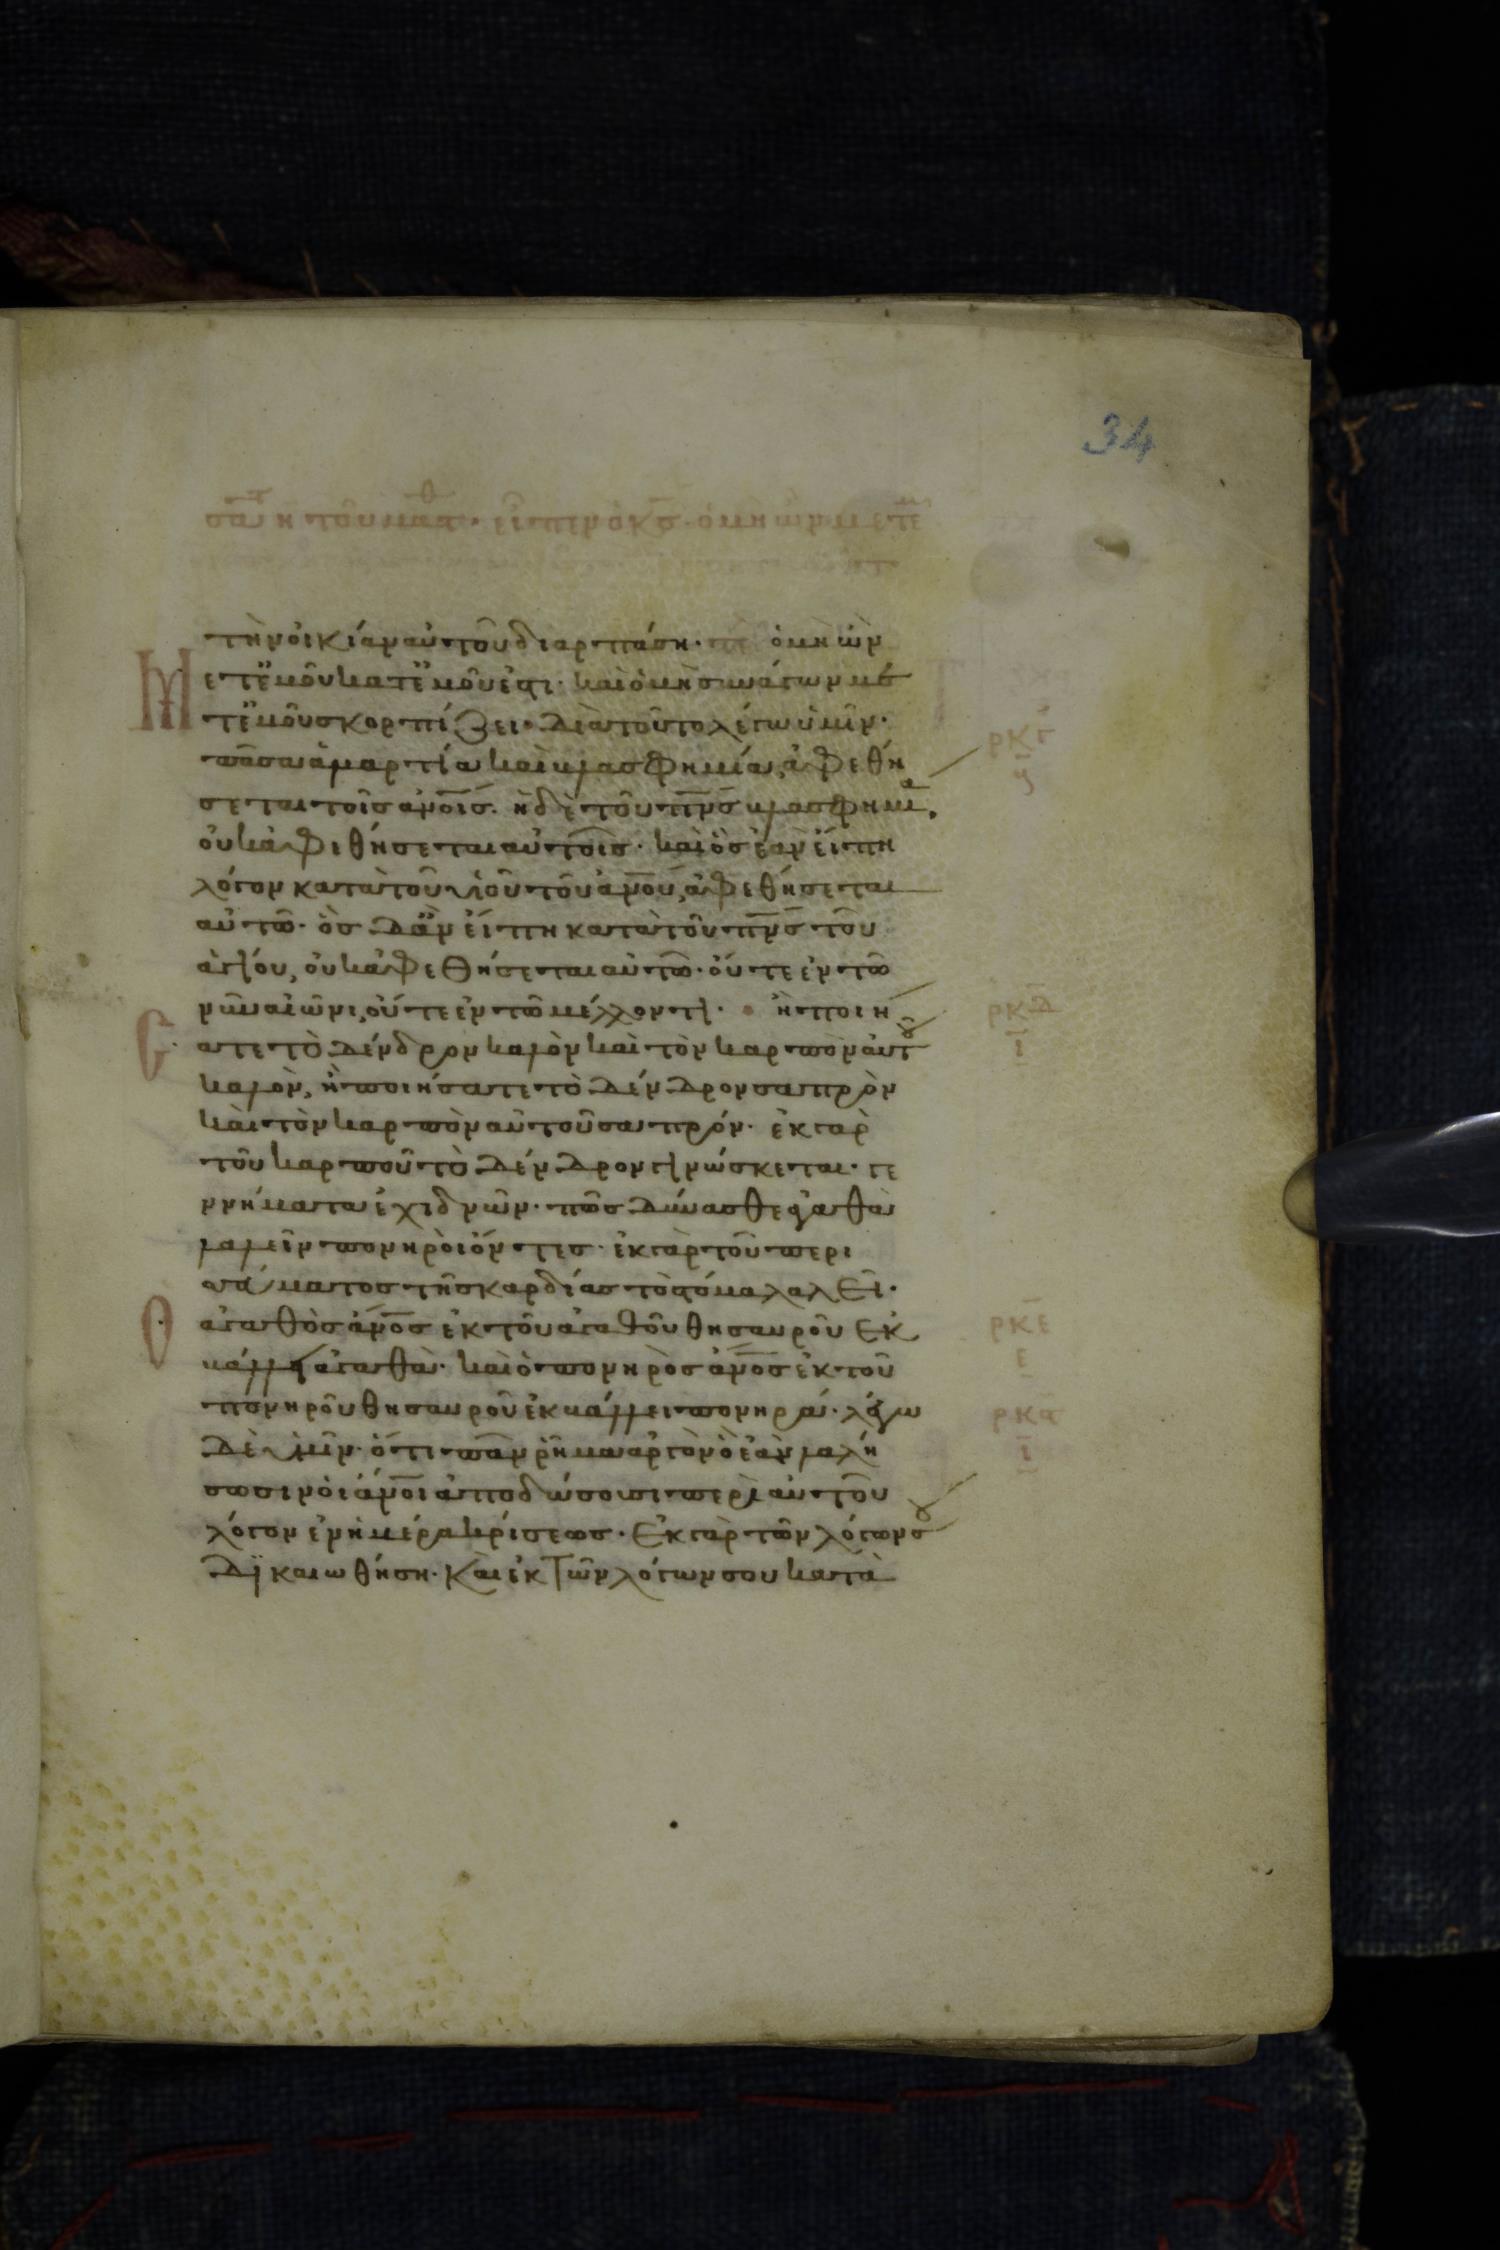 34
τὴν οἰκίαν αὐτοῦ διαρπάση· ὁ μὴ ὢν
μετ ἐμοῦ κατ ἐμοῦ ἐστι· καὶ ὁ μὴ συνάγων με
τ ἐμοῦ σκορπίζει· διὰ τοῦτο λέγω ὑμῖν·
πᾶσα ἁμαρτία καὶ βλασφημία, ἀφεθή
σεται τοῖς ἀνοις· ἡ δὲ τοῦ πνς βλασφημία,
οὐκ ἀφεθήσεται αὐτοῖς· καὶ ὃς ἐὰν εἴπη
λόγον κατὰ τοῦ υἱοῦ τοῦ ἀνου, ἀφεθήσεται
αὐτῶ· ὃς δ ἂν εἴπη κατὰ τοῦ πνς τοῦ
ἁγίου, οὐκ ἀφεθήσεται αὐτῶ· οὔτε ἐν τῶ
νῦν αἰῶνι, οὔτε ἐν τῶ μέλλοντι· ἢ ποιή
σατε τὸ δένδρον καλὸν καὶ τὸν καρπὸν αὐτοῦ
καλὸν, ἢ ποιήσατε τὸ δένδρον σαπρὸν
καὶ τὸν καρπὸν αὐτοῦ σαπρόν· ἐκ γὰρ
τοῦ καρποῦ τὸ δένδρον γινώσκεται· γε
ννήματα ἐχιδνῶν· πῶς δύνασθε ἀγαθὰ
λαλεῖν πονηροὶ ὄντες· ἐκ γὰρ τοῦ περι
σσεύματος τῆς καρδίας τὸ στόμα λαλεῖ·
ὁ ἀγαθὸς ἀνος ἐκ τοῦ ἀγαθοῦ θησαυροῦ ἐκ
βάλλει ἀγαθὰ· καὶ ὁ πονηρὸς ἀνος ἐκ τοῦ
πονηροῦ θησαυροῦ ἐκβάλλει πονηρά· λέγω
δὲ ὑμῖν· ὅτι πᾶν ῥῆμα ἀργὸν ὃ ἐὰν λαλή
σωσιν οἱ ἀνοι ἀποδώσουσι περὶ αὐτοῦ
λόγον ἐν ἡμέρα κρίσεως· ἐκ γὰρ τῶν λόγων σου
δικαιωθήση· καὶ ἐκ τῶν λόγων σου κατα
ρκδ
ι
ρκε
ε